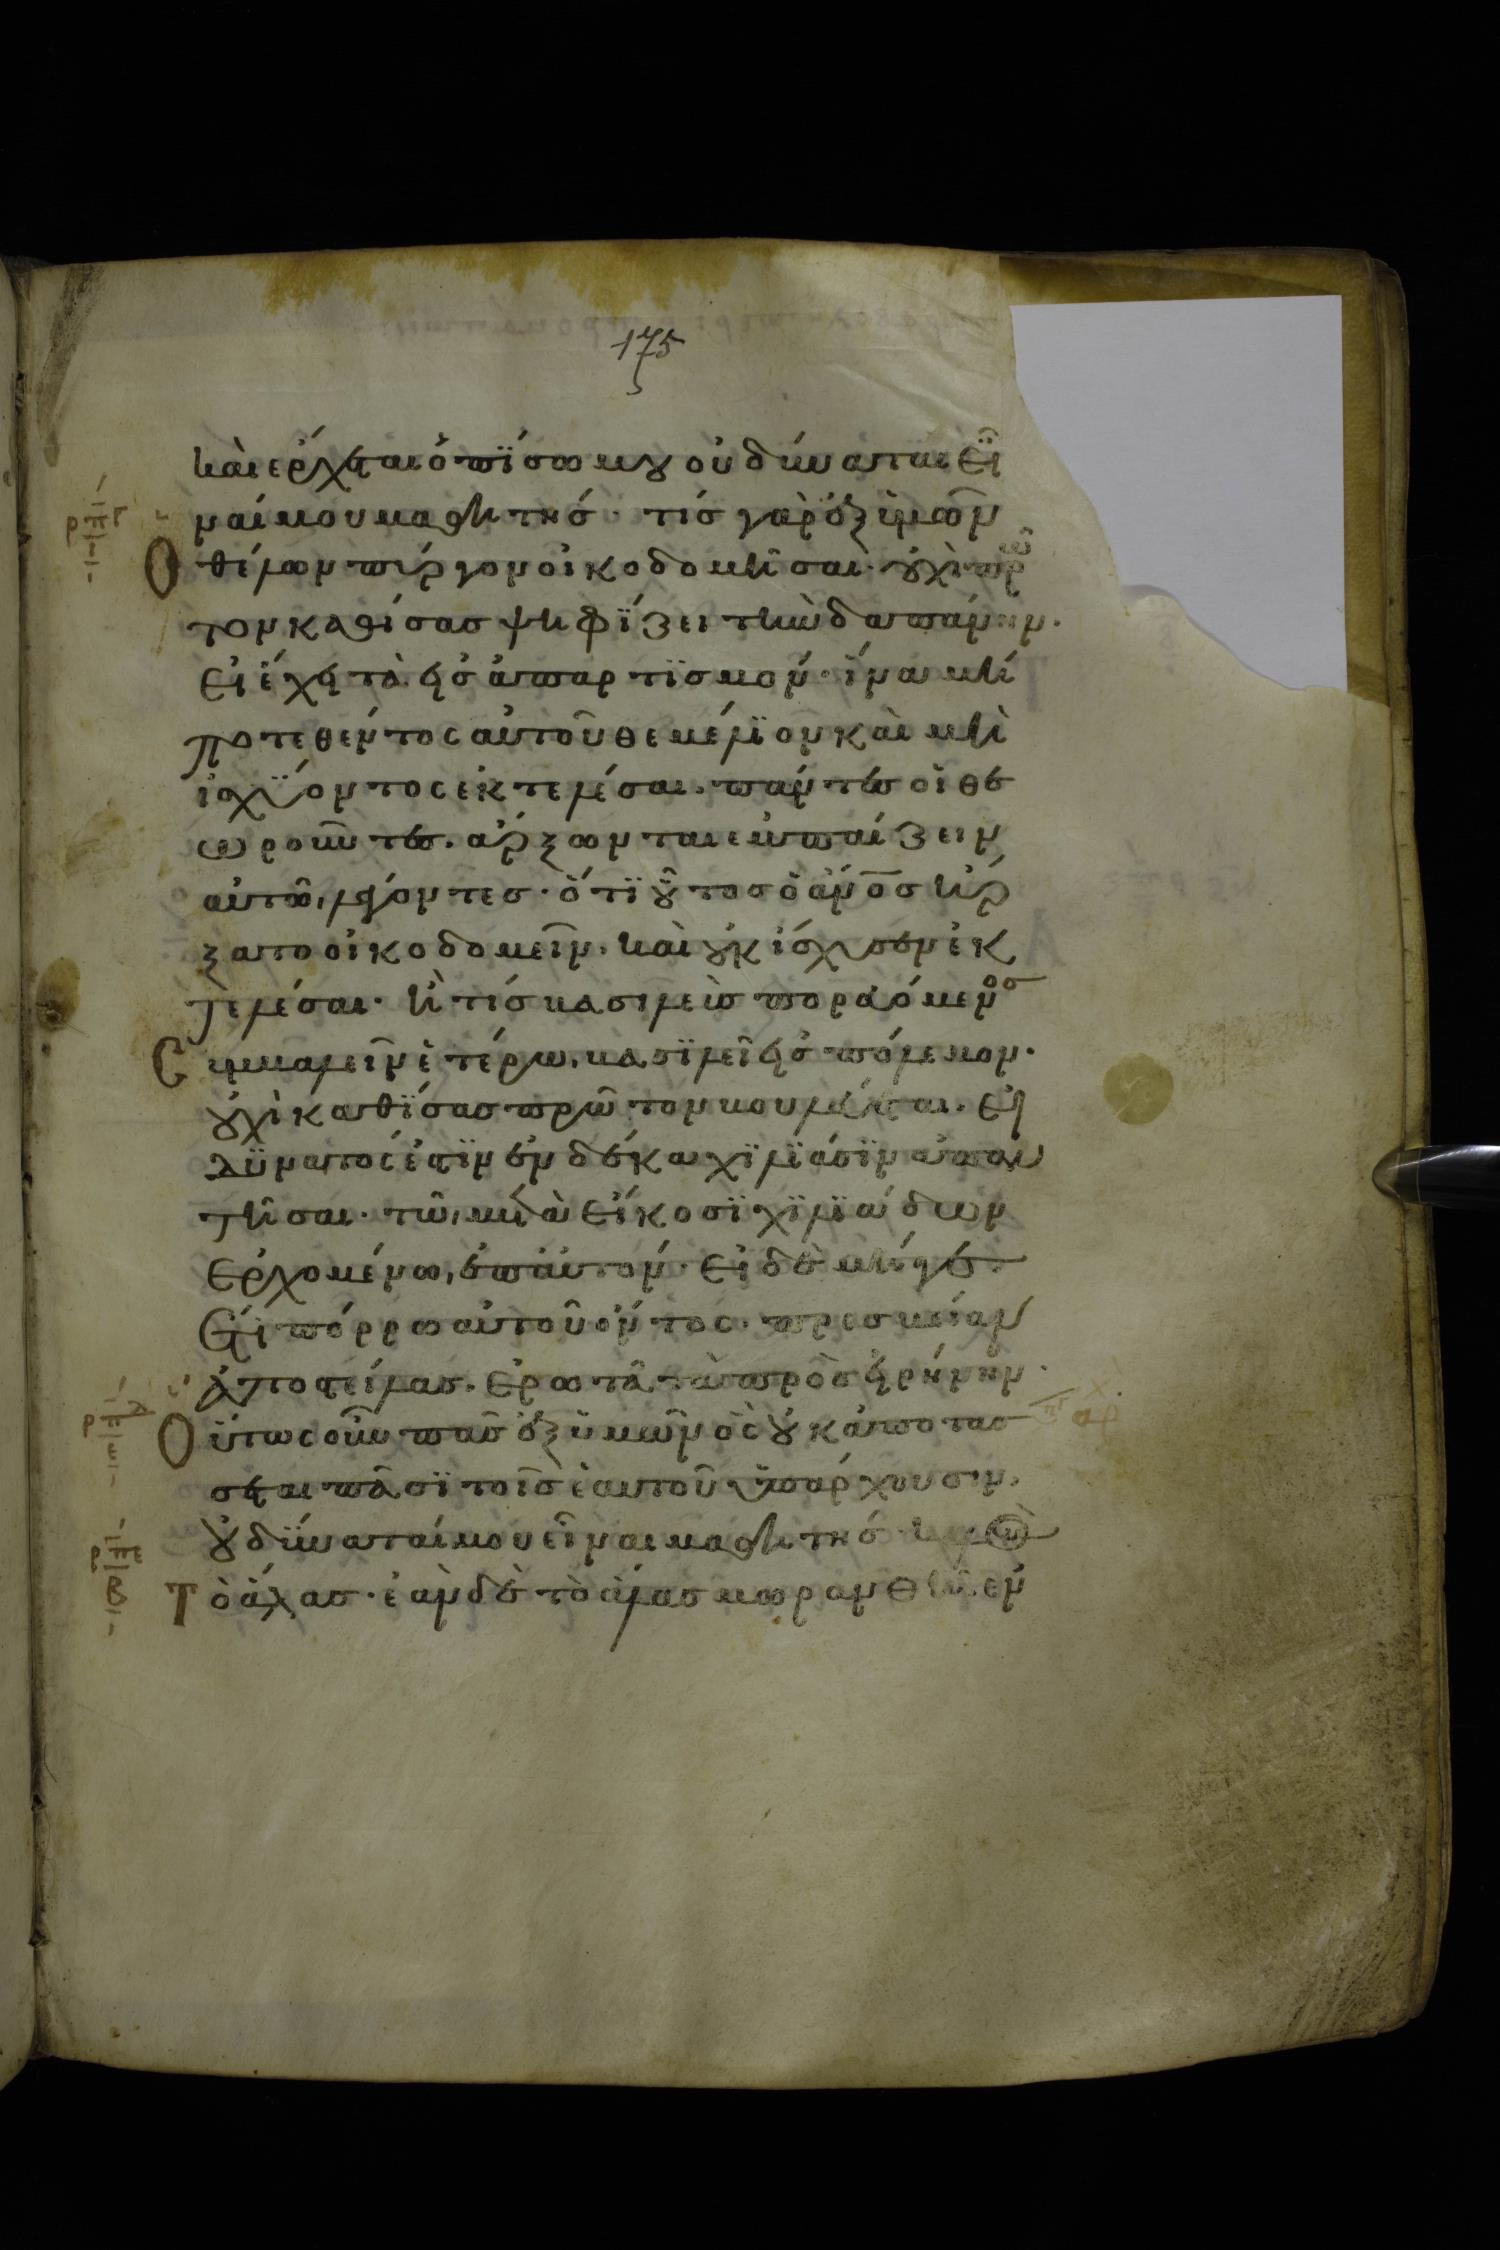 175
καὶ ἔρχεται ὀπίσω μου οὐ δύναται εἶ
ναί μου μαθητής· τίς γὰρ ἐξ ὑμῶν
Ο θέλων πύργον οἰκοδομῆσαι· οὐχὶ πρῶ
τον καθίσας ψηφίζει τὴν δαπάνην·
εἰ ἔχει τὰ εἰς ἀπαρτϊσμόν· ἵνα μή
ποτε θέντος αὐτοῦ θεμέλϊον καὶ μὴ
ἰσχύοντος ἐκτελέσαι· πάντες οἱ θε
ωροῦντες· ἄρξωνται ἐμπαίζειν
αὐτῶ, λέγοντες· ὅτϊ οὗτος ὁ ἄνος ἤρ
ξατο οἰκοδομεῖν· καὶ οὐκ ἴσχυσεν ἐκ
τελέσαι· ἢ τίς βασιλεὺς πορευόμενος
Συμβαλεῖν ἑτέρω, βασϊλεῖ εἰς πόλεμον·
οὐχὶ καθϊσας πρῶτον βουλεύεται· εἰ
δϋνατός ἐστϊν ἐν δέκα χϊλϊάσϊν ἀπαν
τῆσαι· τῶ, μετὰ εἴκοσϊ χϊλϊάδων
ἐρχομένω, ἐπ' αὐτόν· εἰ δὲ μήγε·
ἔτι πόρρω αὐτοῦ ὄντος· πρεσβείαν
ἀποστείλας· ἐρωτᾶ τὰ πρὸς εἰρήνην·
Οὕτως οὖν πᾶς ἐξ ὑμῶν ὃς οὐκ ἀποτάσ
σεται πᾶσϊ τοῖς ἑαυτοῦ ὑπάρχουσιν,
οὐ δύναταί μου εἶναι μαθητής· καλὸν
Τὸ ἅλας· ἐὰν δὲ τὸ ἅλας μωρανθῆ ἐν